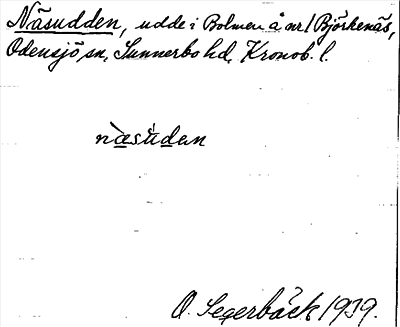 Näsudden, udde i Bolmen å nr 1 Björkenäs,
Odensjö sn, Sunnerbo hd, Kronob. l.
næsuden
O. Segerbäck 1939.